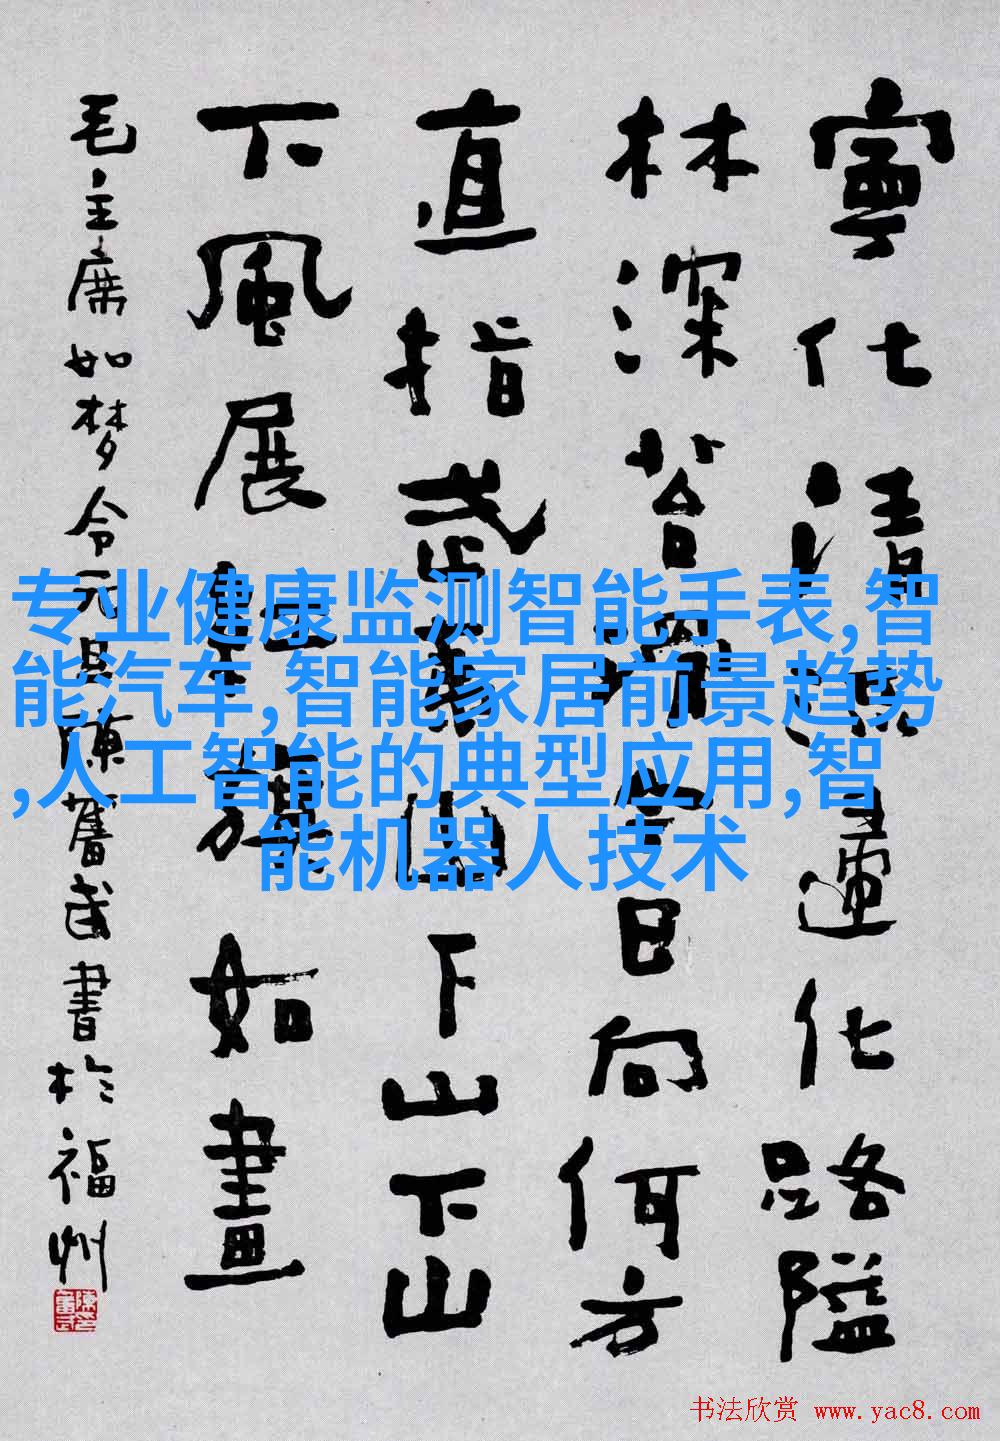 寧化清流化路隘
林深苔滑今日向何方
直指武夷山下山下山
下風展紅旗如畫
毛主席如梦令元旦陳奮武書於福州
专业健康监测智能手表,智
能汽车,智能家居前景趋势
,人工智能的典型应用,智
能机器人技术
书法欣赏 www.yac8.com